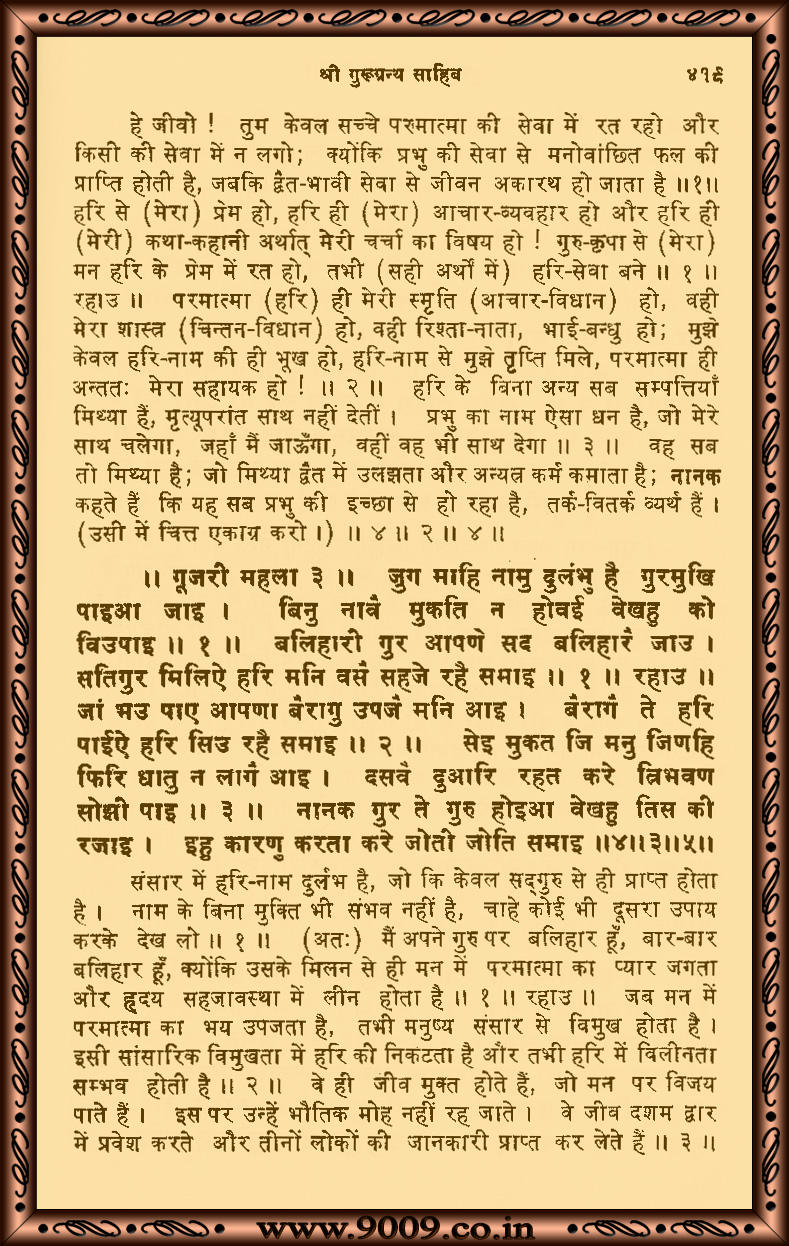 श्री गुरूग्रन्थ साहिब ४१९
हे जीवो ! तुम केवल सच्चे परमात्मा की सेवा में रत रहो और
किसी की सेवा में न लगो; क्योंकि प्रभु की सेवा से मनोवांछित फल की
प्राप्ति होती है, जबकि द्वैत-भावी सेवा से जीवन अकारथ हो जाता है ॥१॥
हरि से (मेरा) प्रेम हो, हरि ही (मेरा) आचार-व्यवहार हो और हरि ही
(मेरी) कथा-कहानी अर्थात् मेरी चर्चा का विषय हो ! गुरु-कृपा से (मेरा)
मन हरि के प्रेम में रत हो, तभी (सही अर्थों में) हरि-सेवा बने ॥ १ ॥
रहाउ ॥ परमात्मा (हरि) ही मेरी स्मृति (आचार-विधान) हो, वही
मेरा शास्त्र (चिन्तन-विधान) हो, वही रिश्ता-नाता, भाई-बन्धु हो; मुझे
केवल हरि-नाम की ही भूख हो, हरि-नाम से मुझे तृप्ति मिले, परमात्मा ही
अन्ततः मेरा सहायक हो ! ॥ २ ॥ हरि के बिना अन्य सब सम्पत्तियाँ
मिथ्या हैं, मृत्यूपरांत साथ नहीं देतीं । प्रभु का नाम ऐसा धन है, जो मेरे
साथ चलेगा, जहाँ मैं जाऊँगा, वहीं वह भी साथ देगा ॥ ३ ॥ वह सब
तो मिथ्या है; जो मिथ्या द्वैत में उलझता और अन्यत्र कर्म कमाता है; नानक
कहते हैं कि यह सब प्रभु की इच्छा से हो रहा है, तर्क-वितर्क व्यर्थ हैं ।
(उसी में चित्त एकाग्र करो ।) ॥ ४ ॥ २ ॥ ४ ॥
॥ गूजरी महला ३ ॥ जुग माहि नामु दुलंभु है गुरमुखि
पाइआ जाइ । बिनु नावै मुकति न होवई वेखहु को
विउपाइ ॥ १ ॥ बलिहारी गुर आपणे सद बलिहारै जाउ ।
सतिगुर मिलिऐ हरि मनि वसै सहजे रहै समाइ ॥ १ ॥ रहाउ ॥
जां भउ पाए आपणा बैरागु उपजै मनि आइ । बैरागै ते हरि
पाईऐ हरि सिउ रहै समाइ ॥ २ ॥ सेइ मुकत जि मनु जिणहि
फिरि धातु न लागै आइ । दसवै दुआरि रहत करे त्रिभवण
सोझी पाइ ॥ ३ ॥ नानक गुर ते गुरु होइआ वेखहु तिस की
रजाइ । इहु कारणु करता करे जोती जोति समाइ ॥४॥३॥५॥
संसार में हरि-नाम दुर्लभ है, जो कि केवल सद्‌गुरु से ही प्राप्त होता
है । नाम के बिना मुक्ति भी संभव नहीं है, चाहे कोई भी दूसरा उपाय
करके देख लो ॥ १ ॥ (अतः) मैं अपने गुरु पर बलिहार हूँ, बार-बार
बलिहार हूँ, क्योंकि उसके मिलन से ही मन में परमात्मा का प्यार जगता
और हृदय सहजावस्था में लीन होता है ॥ १ ॥ रहाउ ॥ जब मन में
परमात्मा का भय उपजता है, तभी मनुष्य संसार से विमुख होता है ।
इसी सांसारिक विमुखता में हरि की निकटता है और तभी हरि में विलीनता
सम्भव होती है ॥ २ ॥ वे ही जीव मुक्त होते हैं, जो मन पर विजय
पाते हैं । इस पर उन्हें भौतिक मोह नहीं रह जाते । वे जीव दशम द्वार
में प्रवेश करते और तीनों लोकों की जानकारी प्राप्त कर लेते हैं ॥ ३ ॥
www.9009.co.in